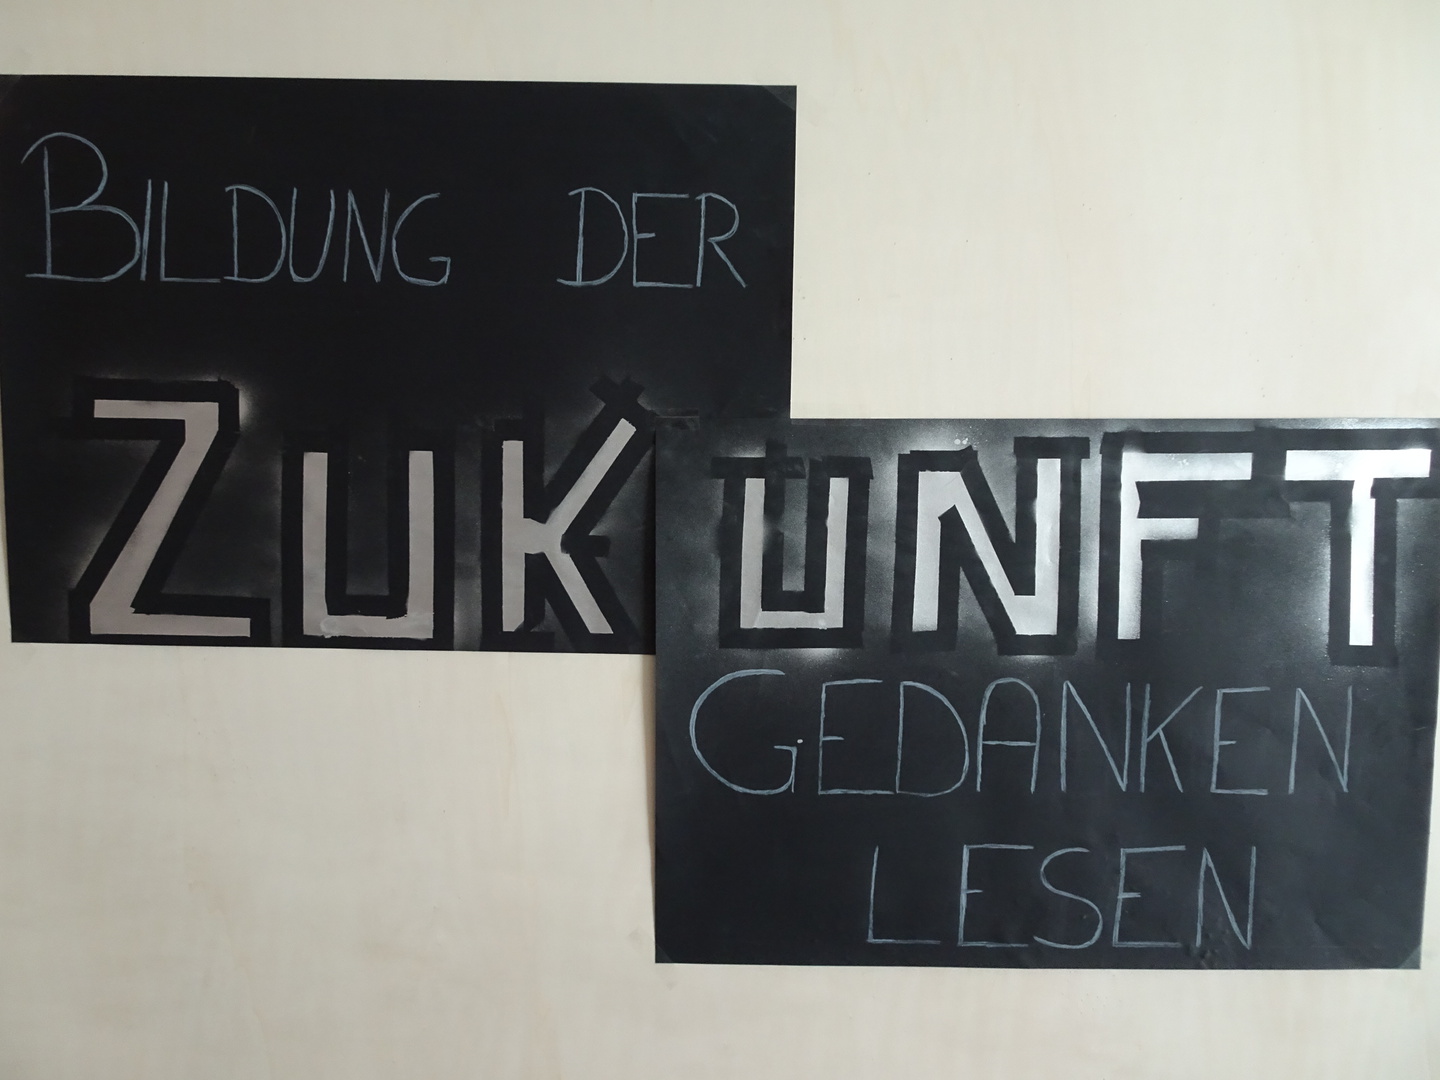 BILDUNG DER
ZUKUNFT
GEDANKEN
LESEN